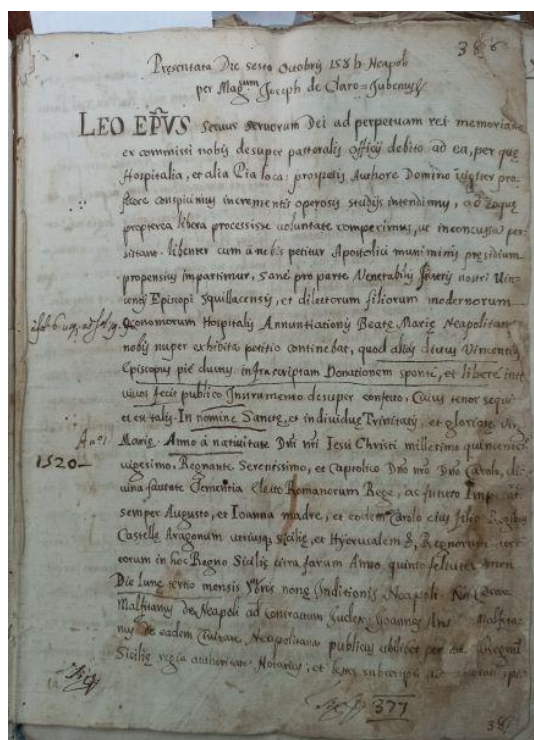 386
Presentata Die sesto Octobris 158 Neapoli
per Mag.cum Joseph de Claro = Jubenus
LEO EPVS Servus servorum Dei ad perpetuam rei memoriam
ex commissi nobis desuper pastoralis officij debito ad ea, per que
Hospitalia, et alia Pia loca prosperis Authore Domino
conspicimus incrementis operosis studijs intendimus, ac
propterea libera processisse voluntate comperimus, ut inconcussa per
sistant libenter cum a nobis petitur Apostolici muniminis presidium
propensius impartimur, Sane pro parte Venerabilis fratris nostri Vin
centij Episcopi Squillacensis, et dilectorum filiorum modernorum
Iconomorum Hospitalis Annuntiationis Beate Marie Neapolitan
nobis nuper exhibita petitio continebat, quod alias dictus Vincentius
Episcopus pie ductus infrascriptam Donationem sponte, et libere inter
vivos fecit publico Instrumento desuper confecto, Cuius tenor sequi
et est talis. In nomine Sancte, et individue Trinitatis, et gloriose Virg
Anō
Marie. Anno à nativitate Dnī nrī Iesu Christi millesimo quincente
1520
vigesimo, Regnante Serenissimo, et Catholico Dnō nrō Dnō Carolo, di
vina favente Clementia electo Romanorum Rege, ac futuro Imperat
semper Augusto, et Ioanna madre, et eodem Carolo eius filio Regibus
Castelle Aragonum utriusque Sicilie, et Hyerusalem &, Regnorum vero
eorum in hoc Regno Sicilie citra farum Anno quinto feliciter amen
Die Lune tertio mensis Xbris none Inditionis Neapoli Nos Cesar
Malfitanus de Neapoli ad contractus Iudex Joannes Malfita
nus de eadem Civitate Neapolitana publicus ubilibet per Regnum
Sicilie regia authoritate Notarius, et testes subscripti
377